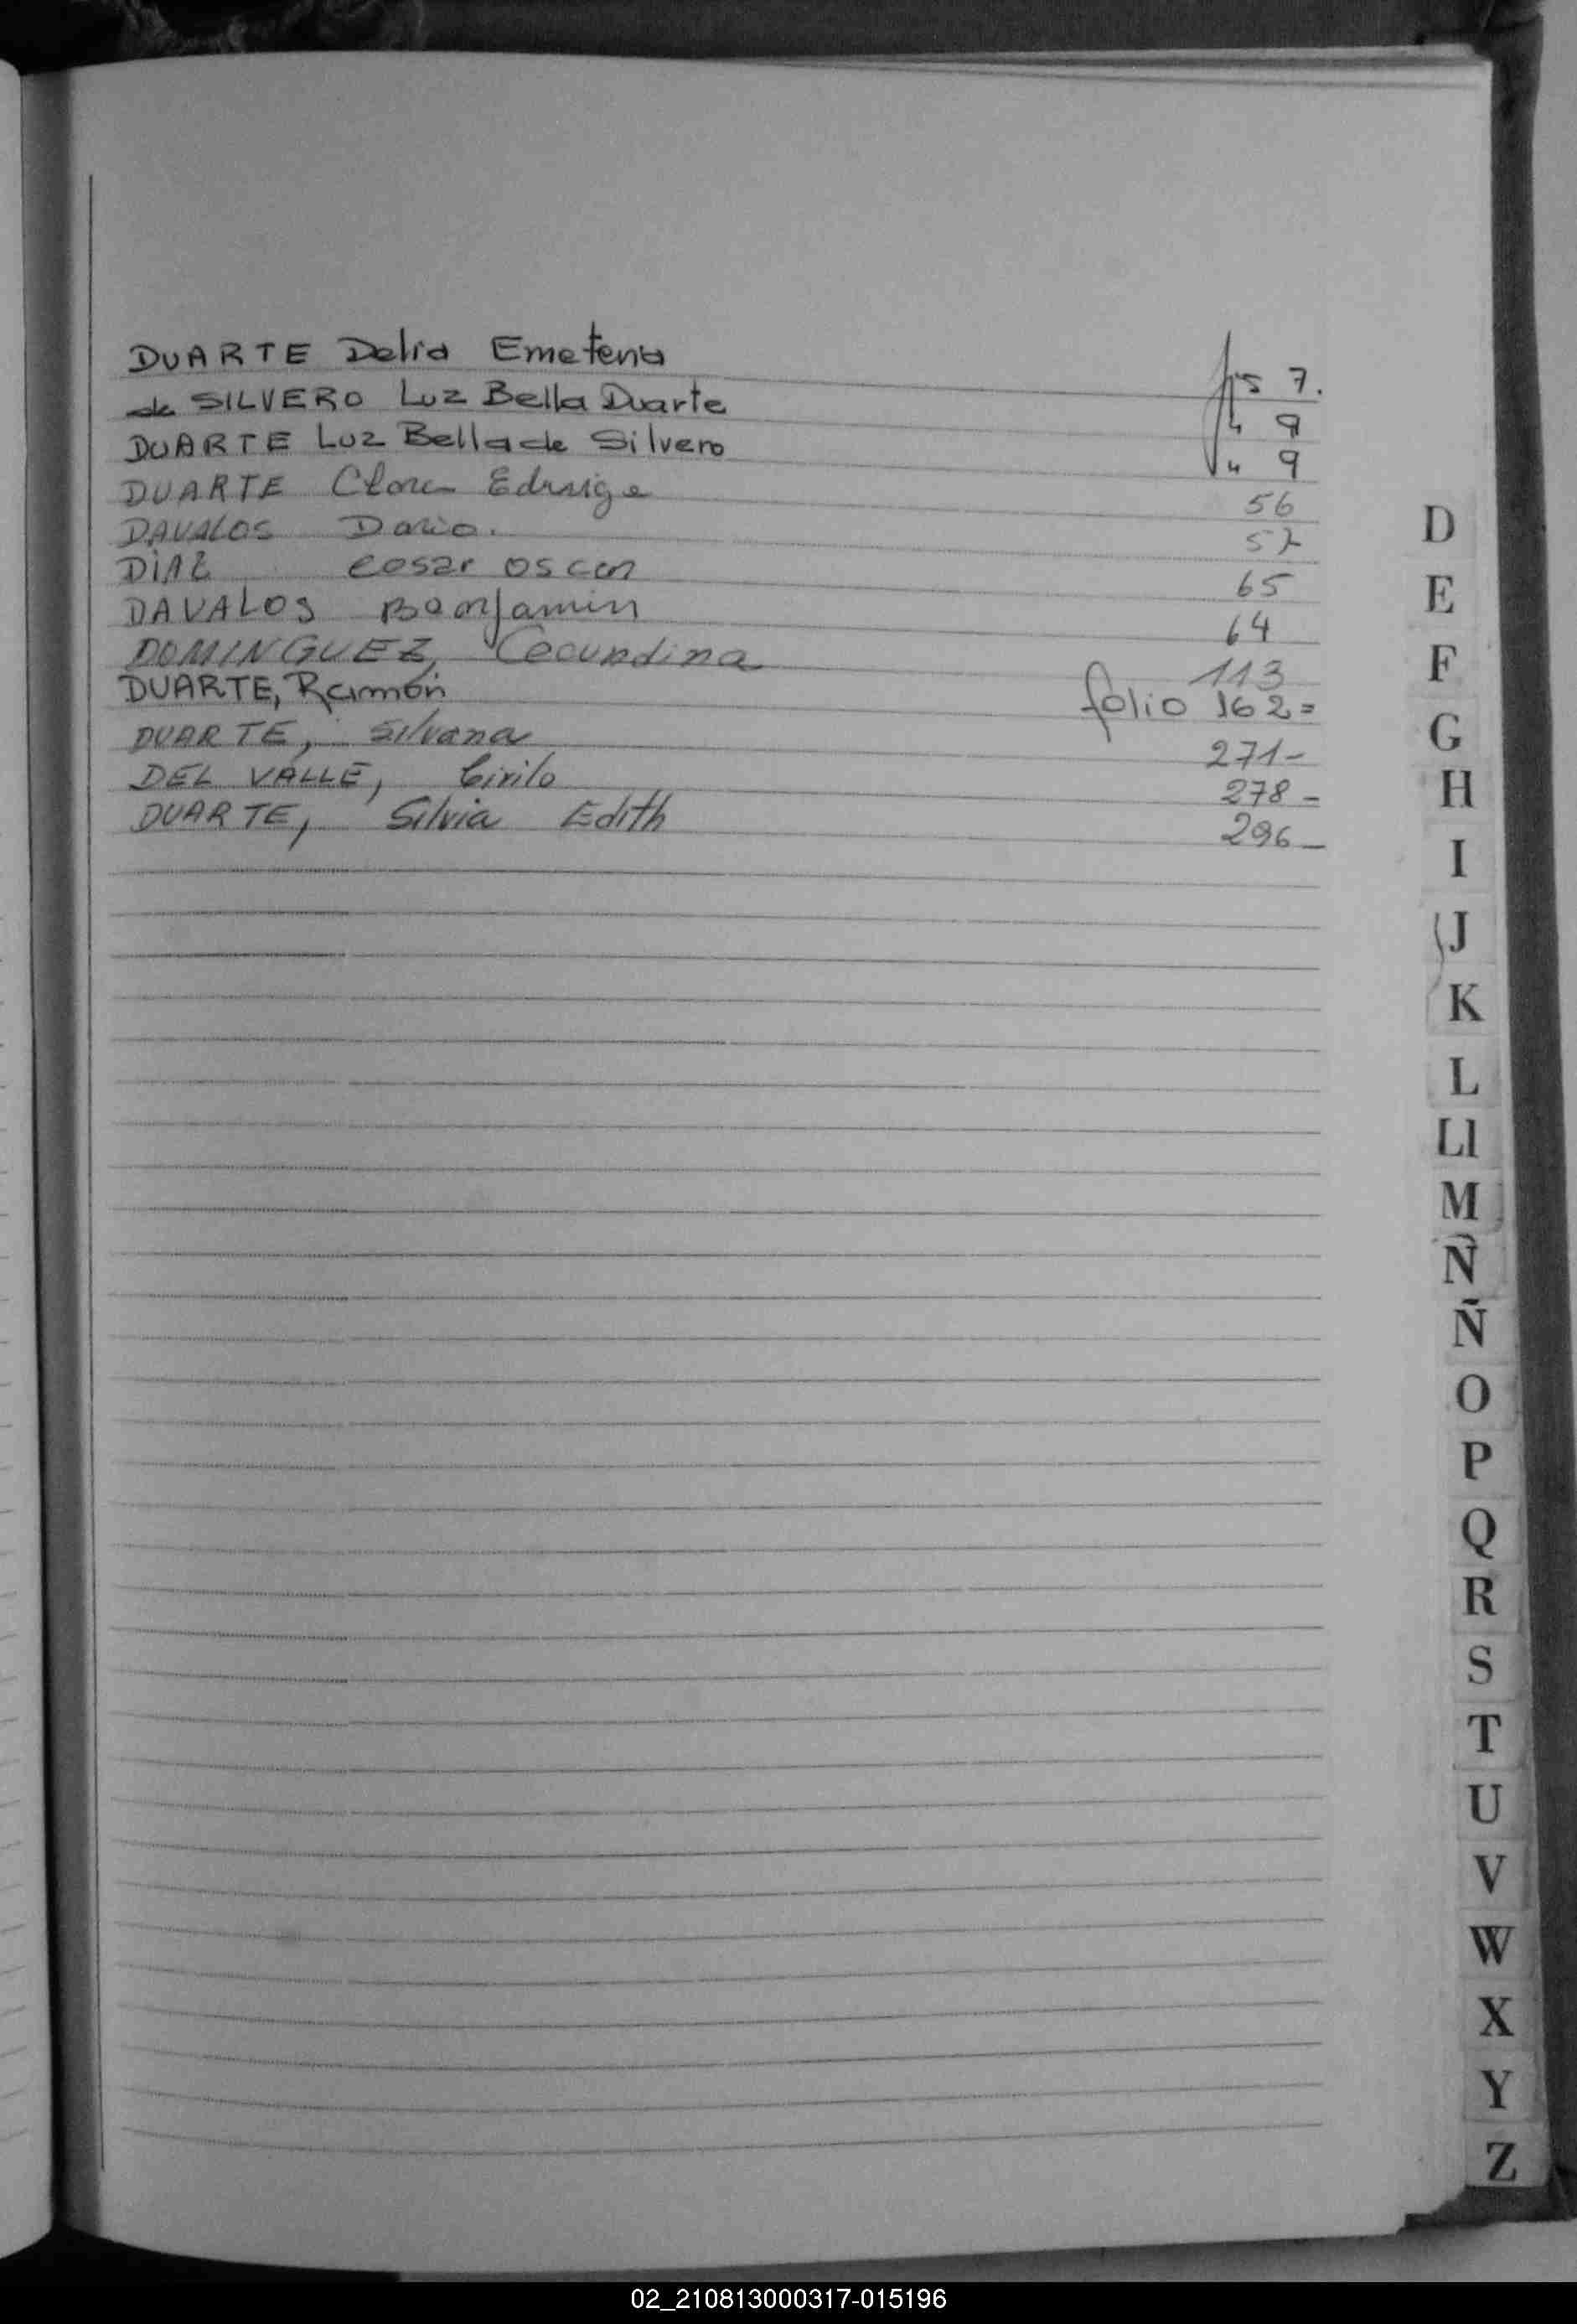 DUARTE Delia Emeteria fjs 7.
de SILVERO Luz Bella Duarte " 9
DUARTE Luz Bella de Silvero " 9
DUARTE Clara Eduvige 56
DAVALOS Dario. 57
DIAZ cesar oscar 65
DAVALOS Benjamin 64
DOMINGUEZ, Cecundina 113
DUARTE, Ramón folio 162=
DUARTE, Silvana 271-
DEL VALLE, Cirilo 278-
DUARTE, Silvia Edith 296-
D
E
F
G
H
I
J
K
L
Ll
M
Ñ
Ñ
O
P
Q
R
S
T
U
V
W
X
Y
Z
02_210813000317-015196